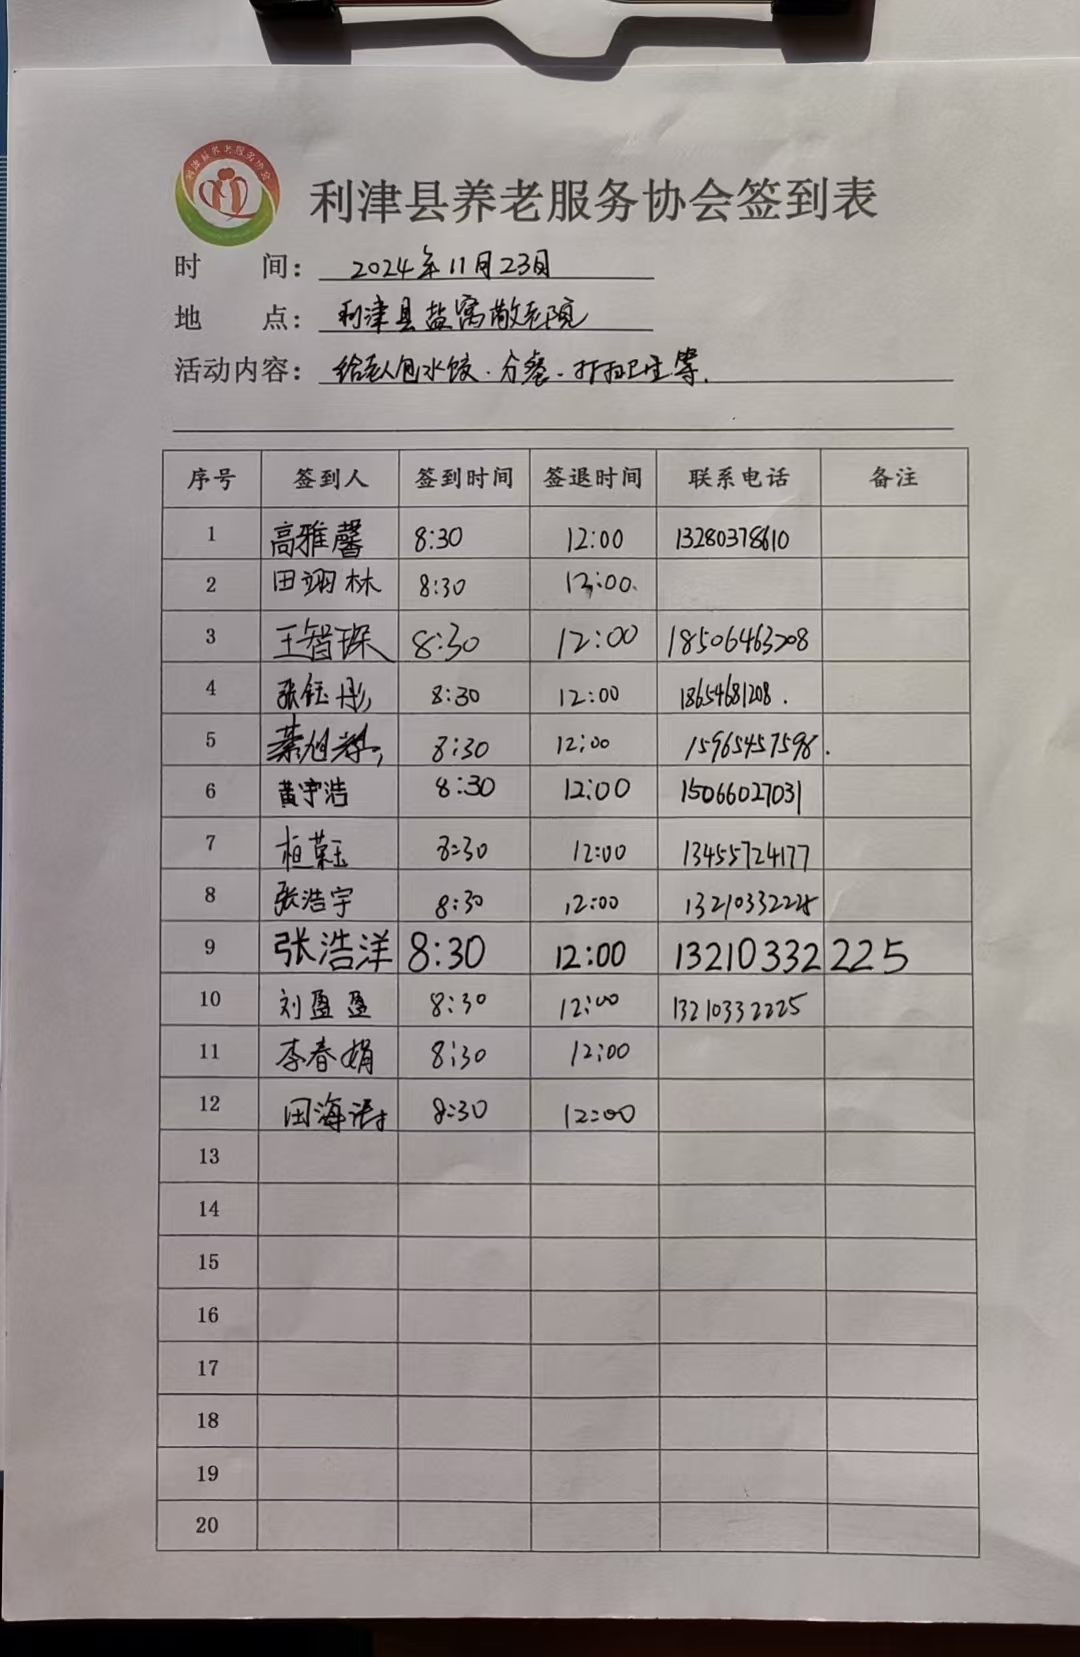 利津县养老服务协会
利津县养老服务协会签到表
时 间：2024年11月23日
地 点：利津县盐窝敬老院
活动内容：给老人包水饺．分餐．打扫卫生等．
序号 签到人 签到时间 签退时间 联系电话 备注
1 高雅馨 8:30 12:00 13280378610
2 田翊林 8:30 12:00.
3 王智琛 8:30 12:00 18506463208
4 张钰彤 8:30 12:00 18654681208.
5 8:30 12:00 15965457598.
6 黄宇浩 8:30 12:00 15066027031
7 桓荣玉 8:30 12:00 13455724177
8 张浩宇 8:30 12:00 13210332225
9 张浩洋 8:30 12:00 13210332225
10 刘盈盈 8:30 12:00 13210332225
11 李春娟 8:30 12:00
12 田海 8:30 12:00
13
14
15
16
17
18
19
20